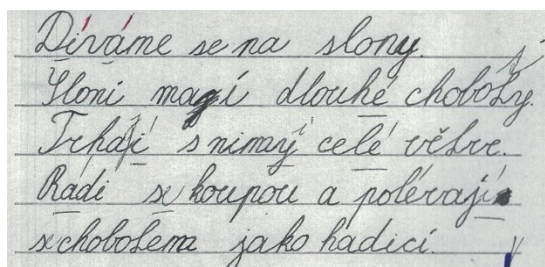 Díváme se na slony.
Sloni mají dlouhé choboty.
Trhají s nimají celé větve.
Rádi se koupou a polévají
se chobotem jako hadicí.